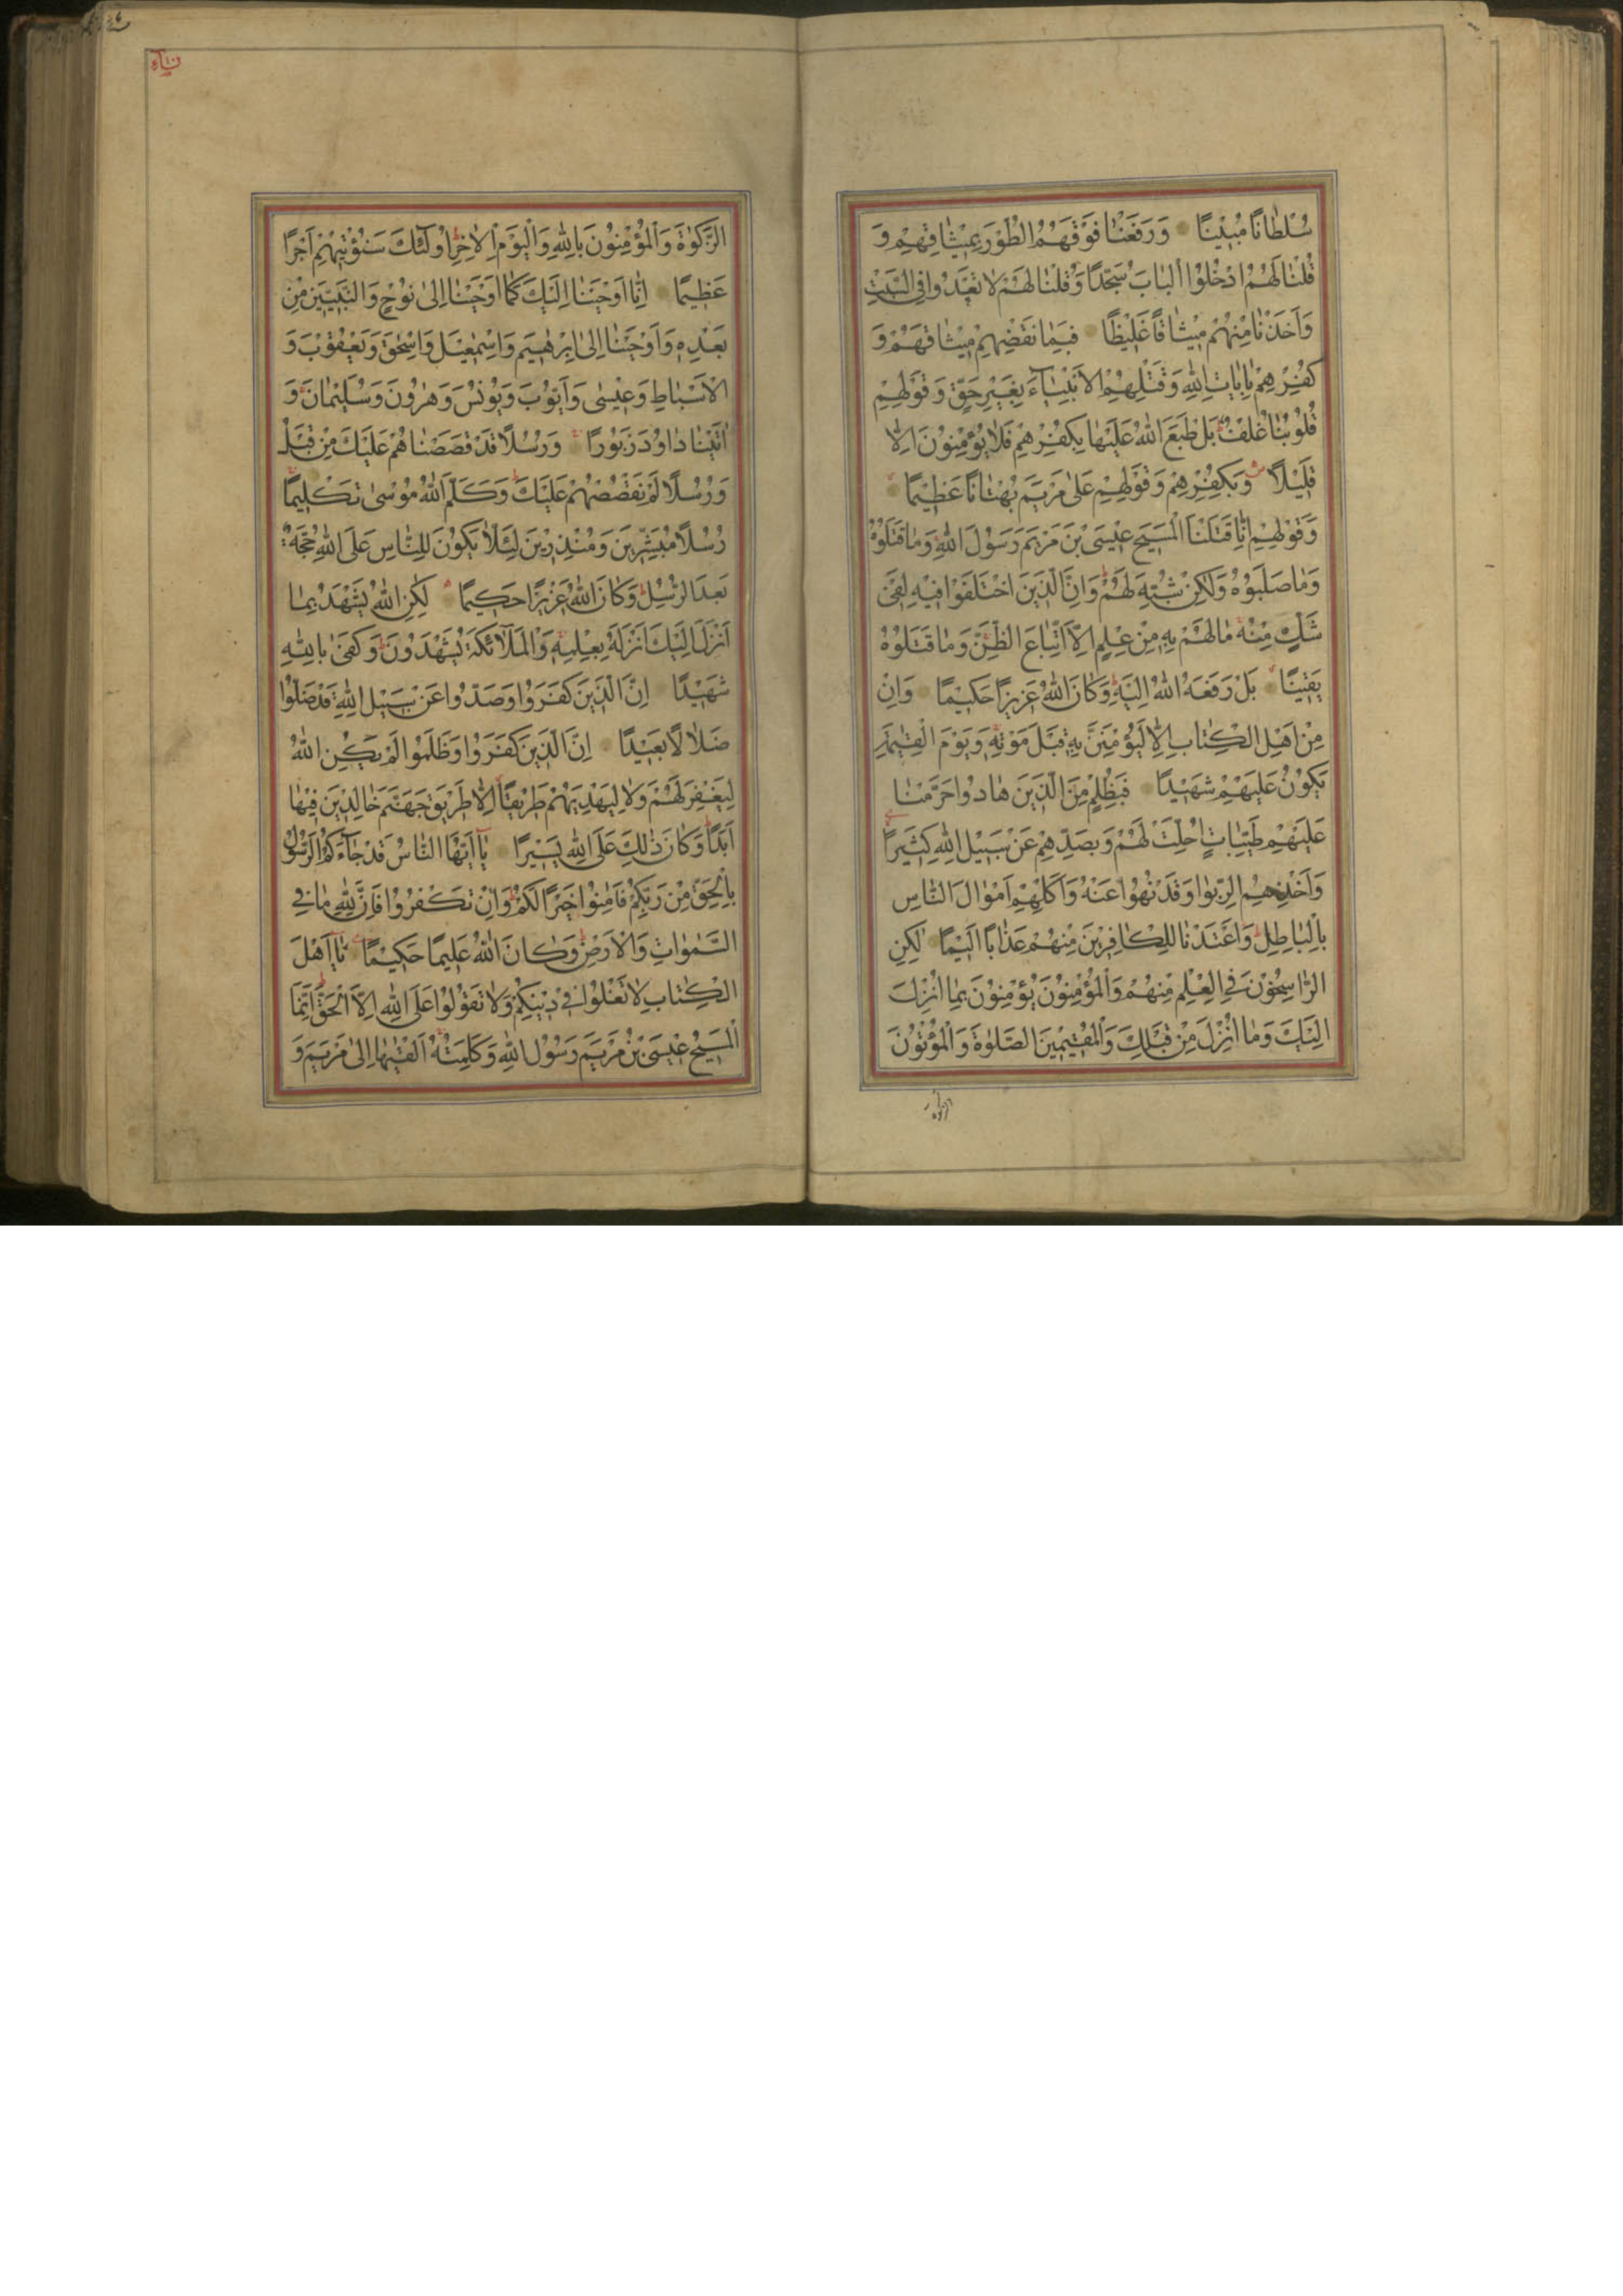 سُلْطَانًا مُبِيْنًا وَرَفَعْنَا فَوْقَهُمُ الطُّوْرَ بِمِيْثَاقِهِمْ وَ
قُلْنَا لَهُمُ ادْخُلُوْا الْبَابَ سُجَّدًا وَقُلْنَا لَهُمْ لَا تَعْدُوا فِي السَّبْتِ
وَاَخَذْنَا مِنْهُمْ مِيْثَاقًا غَلِيْظًا فَبِمَا نَقْضِهِمْ مِيْثَاقَهُمْ وَ
كُفْرِهِمْ بِاٰيَاتِ اللّٰهِ وَقَتْلِهِمُ الْاَنْبِيَآءَ بِغَيْرِ حَقٍّ وَقَوْلِهِمْ
قُلُوْبُنَا غُلْفٌ بَلْ طَبَعَ اللّٰهُ عَلَيْهَا بِكُفْرِهِمْ فَلَا يُؤْمِنُوْنَ اِلَّا
قَلِيْلًا وَبِكُفْرِهِمْ وَقَوْلِهِمْ عَلٰى مَرْيَمَ بُهْتَانًا عَظِيْمًا
وَقَوْلِهِمْ اِنَّا قَتَلْنَا الْمَسِيْحَ عِيْسَى بْنَ مَرْيَمَ رَسُوْلَ اللّٰهِ وَمَا قَتَلُوْهُ
وَمَا صَلَبُوْهُ وَلٰكِنْ شُبِّهَ لَهُمْ وَاِنَّ الَّذِيْنَ اخْتَلَفُوْا فِيْهِ لَفِيْ
شَكٍّ مِنْهُ مَا لَهُمْ بِهِ مِنْ عِلْمٍ اِلَّا اتِّبَاعَ الظَّنِّ وَمَا قَتَلُوْهُ
يَقِيْنًا بَلْ رَفَعَهُ اللّٰهُ اِلَيْهِ وَكَانَ اللّٰهُ عَزِيْزًا حَكِيْمًا وَاِنْ
مِنْ اَهْلِ الْكِتَابِ اِلَّا لَيُؤْمِنَنَّ بِهِ قَبْلَ مَوْتِهِ وَيَوْمَ الْقِيٰمَةِ
يَكُوْنُ عَلَيْهِمْ شَهِيْدًا فَبِظُلْمٍ مِنَ الَّذِيْنَ هَادُوْا حَرَّمْنَا
عَلَيْهِمْ طَيِّبَاتٍ اُحِلَّتْ لَهُمْ وَبِصَدِّهِمْ عَنْ سَبِيْلِ اللّٰهِ كَثِيْرًا
وَاَخْذِهِمُ الرِّبٰوا وَقَدْ نُهُوْا عَنْهُ وَاَكْلِهِمْ اَمْوَالَ النَّاسِ
بِالْبَاطِلِ وَاَعْتَدْنَا لِلْكَافِرِيْنَ مِنْهُمْ عَذَابًا اَلِيْمًا لٰكِنِ
الرَّاسِخُوْنَ فِي الْعِلْمِ مِنْهُمْ وَالْمُؤْمِنُوْنَ يُؤْمِنُوْنَ بِمَا اُنْزِلَ
اِلَيْكَ وَمَا اُنْزِلَ مِنْ قَبْلِكَ وَالْمُقِيْمِيْنَ الصَّلٰوةَ وَالْمُؤْتُوْنَ
الزَّكٰوةَ وَالْمُؤْمِنُوْنَ بِاللّٰهِ وَالْيَوْمِ الْاٰخِرِ اُولٰٓئِكَ سَنُؤْتِيْهِمْ اَجْرًا
عَظِيْمًا اِنَّا اَوْحَيْنَا اِلَيْكَ كَمَا اَوْحَيْنَا اِلٰى نُوْحٍ وَالنَّبِيِّيْنَ مِنْ
بَعْدِهِ وَاَوْحَيْنَا اِلٰى اِبْرٰهِيْمَ وَاِسْمٰعِيْلَ وَاِسْحٰقَ وَيَعْقُوْبَ وَ
الْاَسْبَاطِ وَعِيْسٰى وَاَيُّوْبَ وَيُوْنُسَ وَهٰرُوْنَ وَسُلَيْمَانَ وَ
اٰتَيْنَا دَاوُدَ زَبُوْرًا وَرُسُلًا قَدْ قَصَصْنَاهُمْ عَلَيْكَ مِنْ قَبْلُ
وَرُسُلًا لَمْ نَقْصُصْهُمْ عَلَيْكَ وَكَلَّمَ اللّٰهُ مُوْسٰى تَكْلِيْمًا
رُسُلًا مُبَشِّرِيْنَ وَمُنْذِرِيْنَ لِئَلَّا يَكُوْنَ لِلنَّاسِ عَلَى اللّٰهِ حُجَّةٌ
بَعْدَ الرُّسُلِ وَكَانَ اللّٰهُ عَزِيْزًا حَكِيْمًا لٰكِنِ اللّٰهُ يَشْهَدُ بِمَا
اَنْزَلَ اِلَيْكَ اَنْزَلَهُ بِعِلْمِهِ وَالْمَلَآئِكَةُ يَشْهَدُوْنَ وَكَفٰى بِاللّٰهِ
شَهِيْدًا اِنَّ الَّذِيْنَ كَفَرُوْا وَصَدُّوْا عَنْ سَبِيْلِ اللّٰهِ قَدْ ضَلُّوْا
ضَلَالًا بَعِيْدًا اِنَّ الَّذِيْنَ كَفَرُوْا وَظَلَمُوْا لَمْ يَكُنِ اللّٰهُ
لِيَغْفِرَ لَهُمْ وَلَا لِيَهْدِيَهُمْ طَرِيْقًا اِلَّا طَرِيْقَ جَهَنَّمَ خَالِدِيْنَ فِيْهَا
اَبَدًا وَكَانَ ذٰلِكَ عَلَى اللّٰهِ يَسِيْرًا يَآ اَيُّهَا النَّاسُ قَدْ جَآءَكُمُ الرَّسُوْلُ
بِالْحَقِّ مِنْ رَبِّكُمْ فَاٰمِنُوْا خَيْرًا لَكُمْ وَاِنْ تَكْفُرُوْا فَاِنَّ لِلّٰهِ مَا فِي
السَّمٰوَاتِ وَالْاَرْضِ وَكَانَ اللّٰهُ عَلِيْمًا حَكِيْمًا يَآ اَهْلَ
الْكِتَابِ لَا تَغْلُوْا فِيْ دِيْنِكُمْ وَلَا تَقُوْلُوْا عَلَى اللّٰهِ اِلَّا الْحَقَّ اِنَّمَا
الْمَسِيْحُ عِيْسَى بْنُ مَرْيَمَ رَسُوْلُ اللّٰهِ وَكَلِمَتُهُ اَلْقٰيهَا اِلٰى مَرْيَمَ وَ